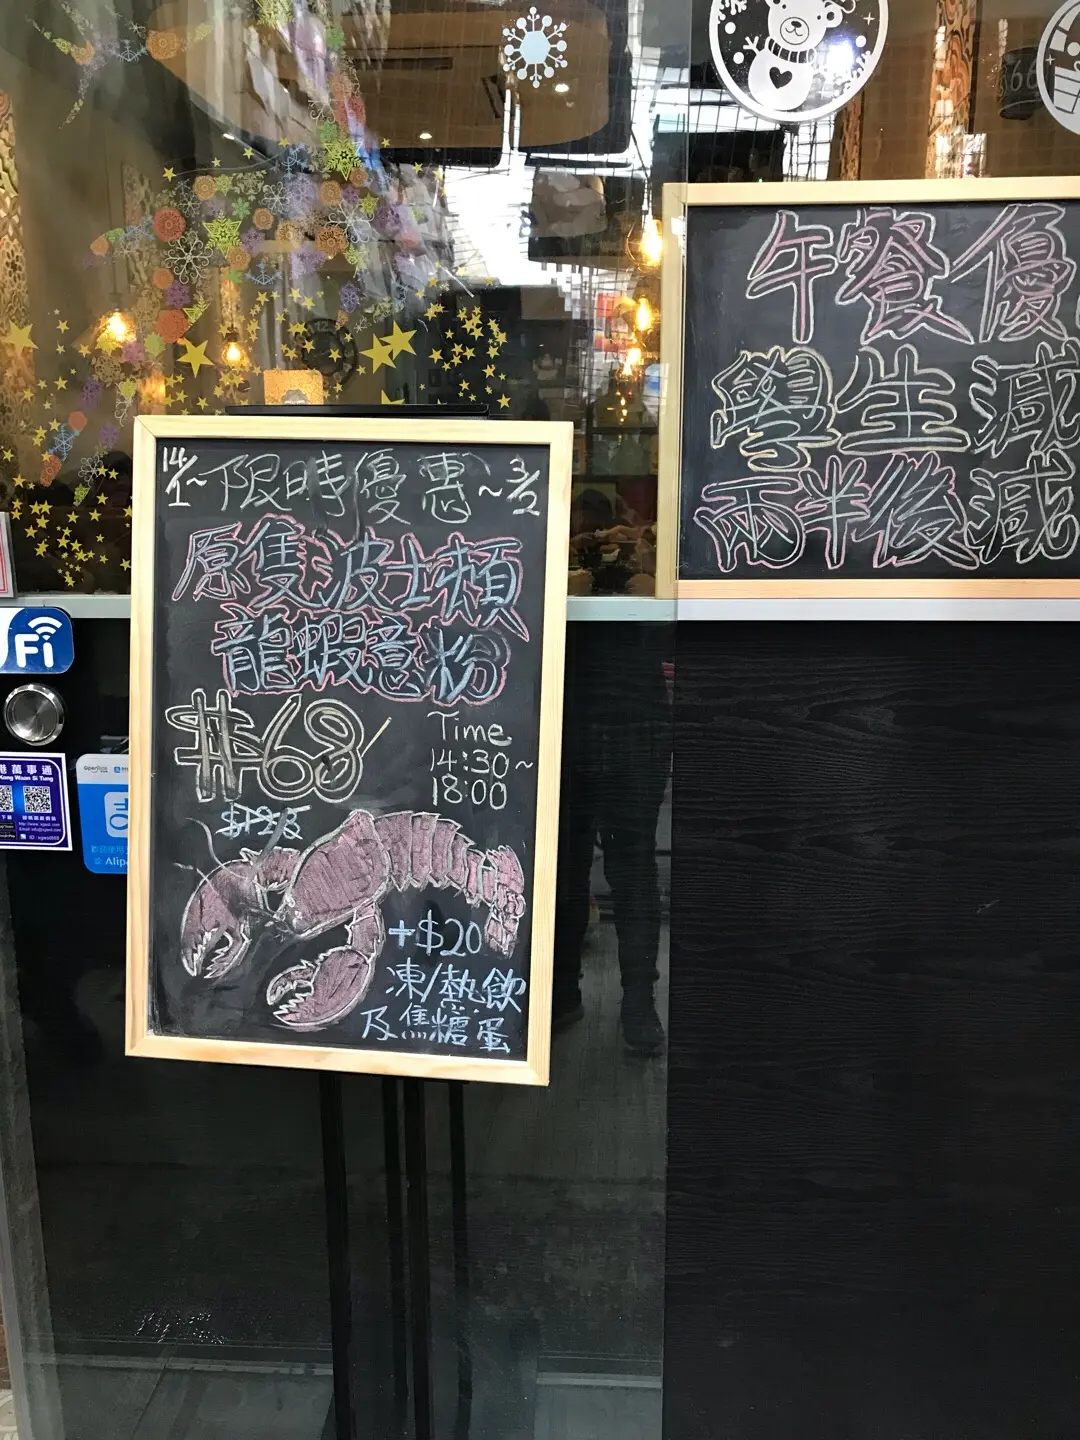 14/1~限時優惠~3/2
原隻波士頓
龍蝦意粉
$68
Time
14:30~
18:00
$128
+$20
凍/熱飲
及焦糖蛋
午餐優
學生減
兩半後減
Fi
港萬事通
Kong Maan Si Tung